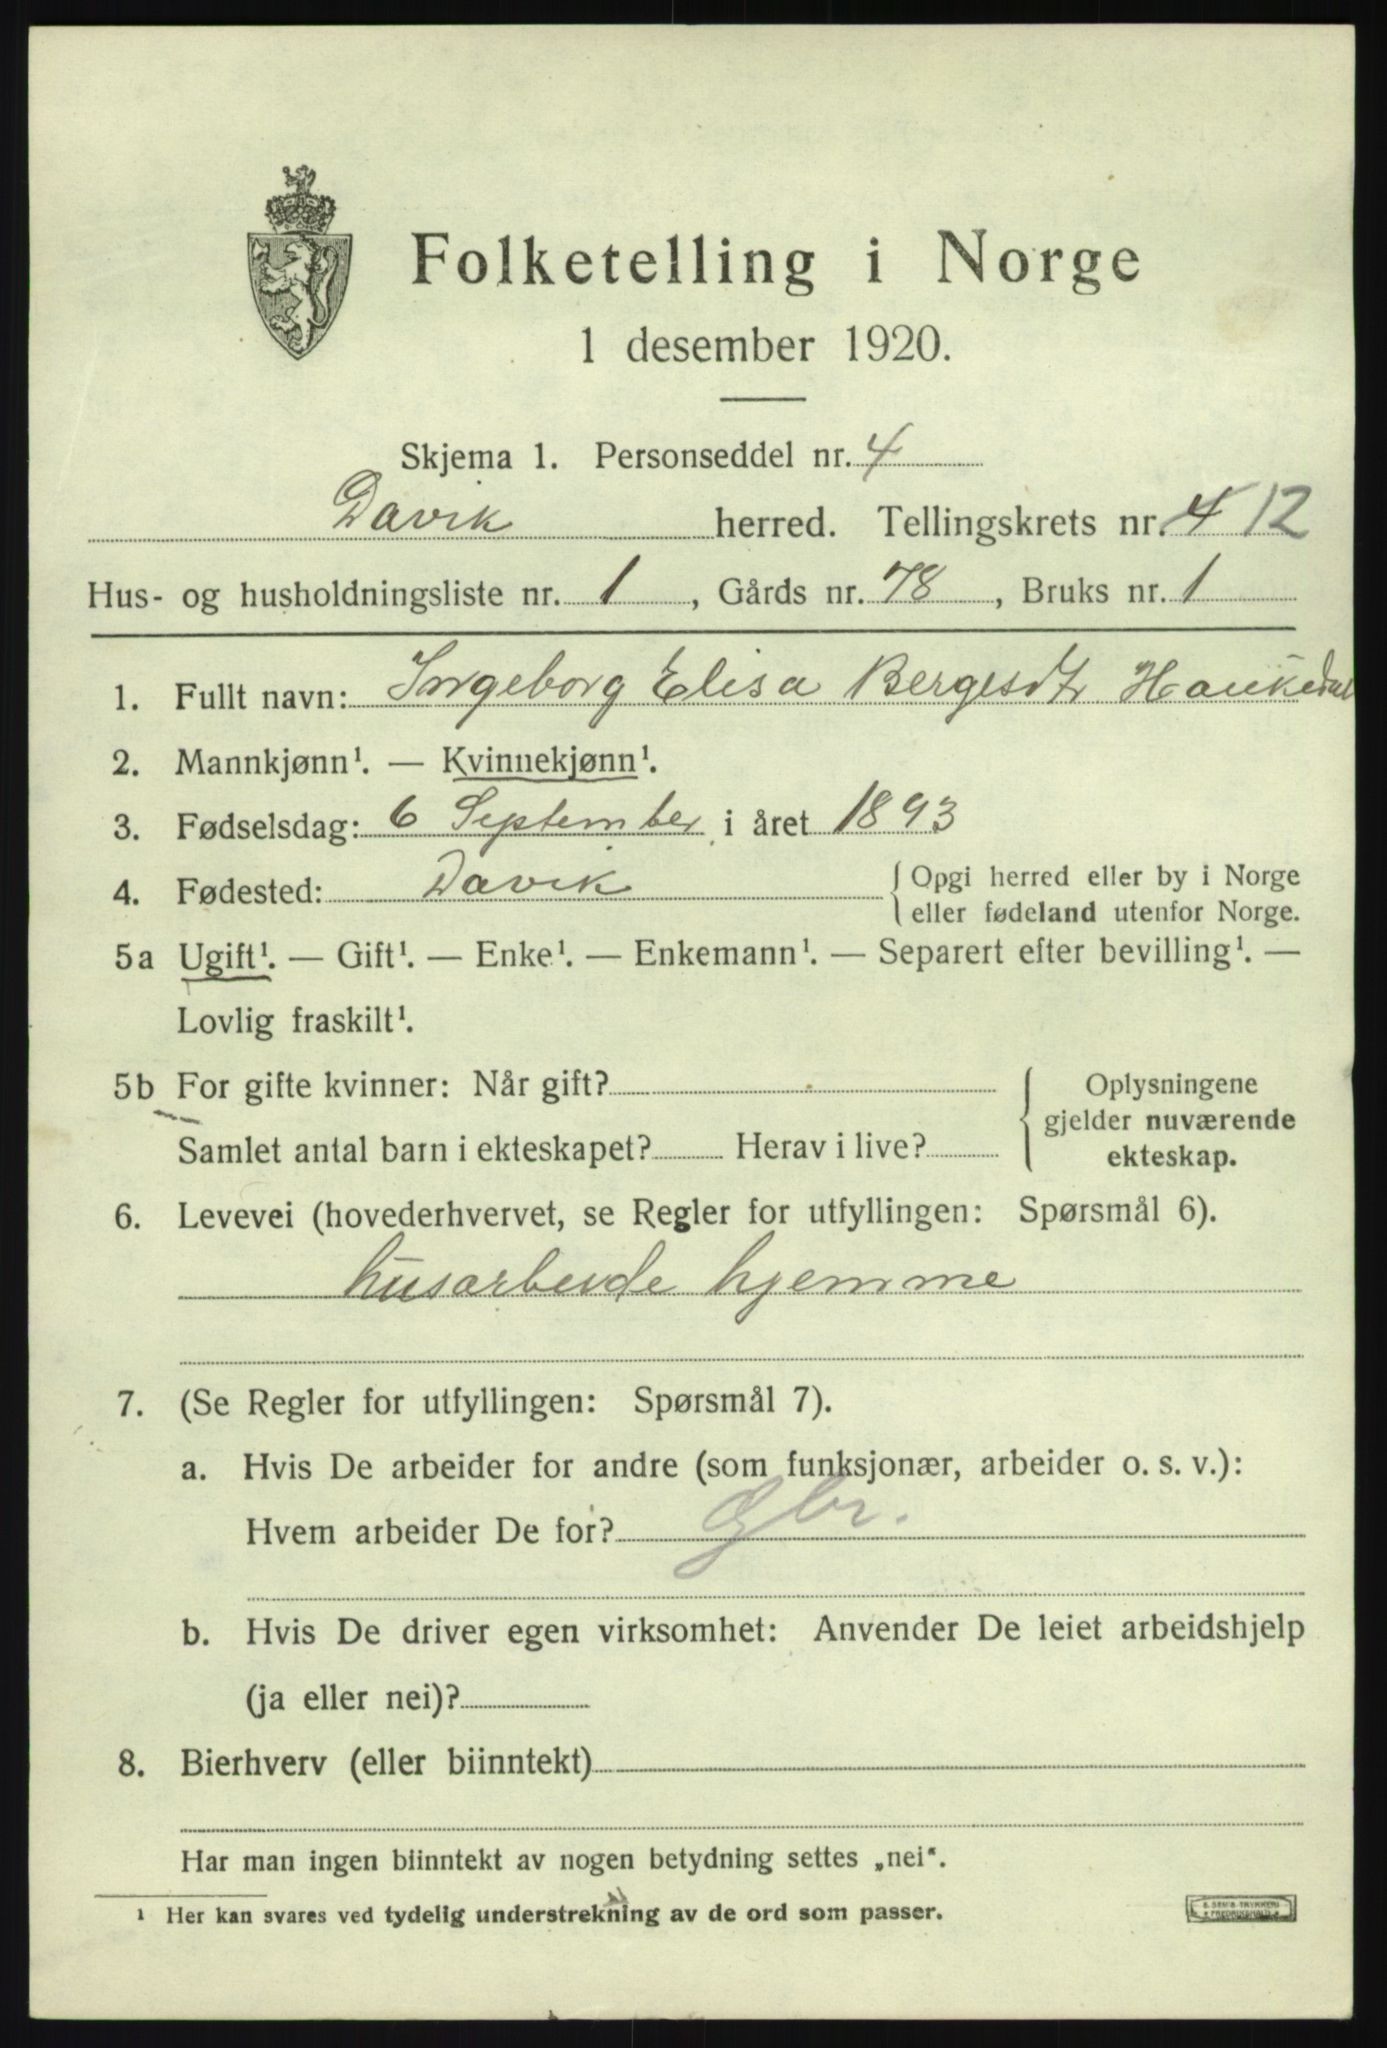 Folketelling i Norge
1 desember 1920.
Skjema 1. Personseddel nr. 4
Davik herred. Tellingskrets nr. 4 12
Hus- og husholdningsliste nr. 1, Gårds nr. 78, Bruks nr. 1
1. Fullt navn: Ingeborg Elisa Bergesdtr Haukedal
2. Mannkjønn¹. — Kvinnekjønn¹.
3. Fødselsdag: 6 September i året 1893
4. Fødested: Davik { Opgi herred eller by i Norge
eller fødeland utenfor Norge.
5a Ugift¹. — Gift¹. — Enke¹. — Enkemann¹. — Separert efter bevilling¹. —
Lovlig fraskilt¹.
5b For gifte kvinner: Når gift? { Oplysningene
gjelder nuværende
Samlet antal barn i ekteskapet? Herav i live? ekteskap.
6. Levevei (hovederhvervet, se Regler for utfyllingen: Spørsmål 6).
husarbeide hjemme
7. (Se Regler for utfyllingen: Spørsmål 7).
a. Hvis De arbeider for andre (som funksjonær, arbeider o. s. v.):
Hvem arbeider De for? Gbr.
b. Hvis De driver egen virksomhet: Anvender De leiet arbeidshjelp
(ja eller nei)?
8. Bierhverv (eller biinntekt)
Har man ingen biinntekt av nogen betydning settes „nei“.
¹ Her kan svares ved tydelig understrekning av de ord som passer.